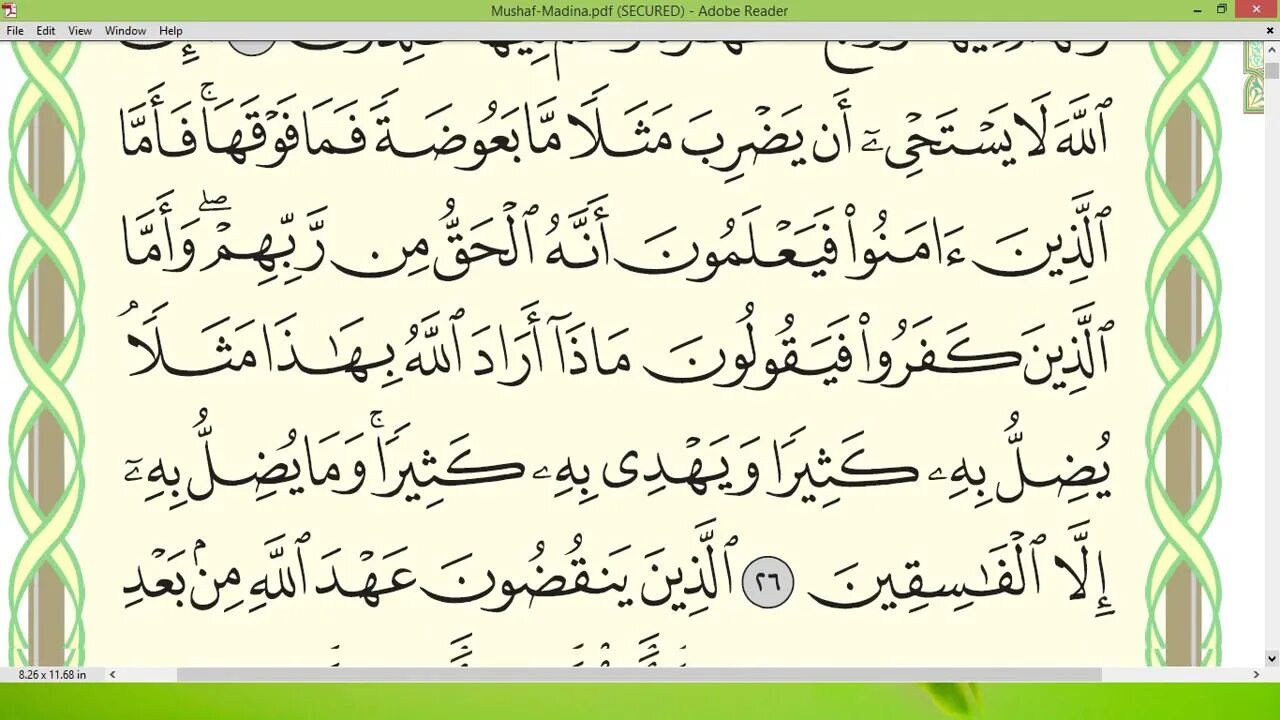 Mushaf-Madina.pdf (SECURED) - Adobe Reader
File Edit View Window Help
ٱللَّهَ لَا يَسْتَحْىِۦٓ أَن يَضْرِبَ مَثَلًا مَّا بَعُوضَةً فَمَا فَوْقَهَا ۚ فَأَمَّا
ٱلَّذِينَ ءَامَنُوا۟ فَيَعْلَمُونَ أَنَّهُ ٱلْحَقُّ مِن رَّبِّهِمْ ۖ وَأَمَّا
ٱلَّذِينَ كَفَرُوا۟ فَيَقُولُونَ مَاذَآ أَرَادَ ٱللَّهُ بِهَٰذَا مَثَلًا ۘ
يُضِلُّ بِهِۦ كَثِيرًا وَيَهْدِى بِهِۦ كَثِيرًا ۚ وَمَا يُضِلُّ بِهِۦٓ
إِلَّا ٱلْفَٰسِقِينَ ٢٦ ٱلَّذِينَ يَنقُضُونَ عَهْدَ ٱللَّهِ مِنۢ بَعْدِ
8.26 x 11.68 in